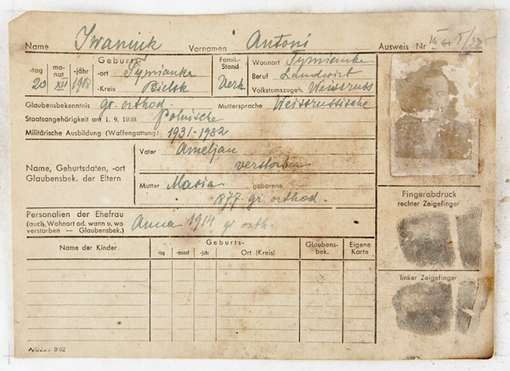 Name Iwaniuk Vornamen Antoni Ausweis Nr.
Geburts- Famil.-Stand Wohnort Tymianka
-tag mo-nat -jahr -ort Tymianka Beruf Landwirt
20 XII -Kreis Bielsk Verh. Volkszugeh. Weissrus
Glaubensbekenntnis gr. orthod. Muttersprache Weissrussische
Staatsangehörigkeit am 1. 9. 1939 Polnische
Militärische Ausbildung (Waffengattung) 1931-1932
Name, Geburtsdaten, -ort
Glaubensbek. der Eltern
Vater Ameljan
verstorben
Mutter Maria geborene
1877 gr. orthod.
Personalien der Ehefrau
(auch Wohnort od. wann u. wo
verstorben — Glaubensbek.)
Anna 1914 gr. orth.
Fingerabdruck
rechter Zeigefinger
Name der Kinder Geburts- Glaubens-bek. Eigene Karte
-tag -monat -jahr Ort (Kreis)
linker Zeigefinger